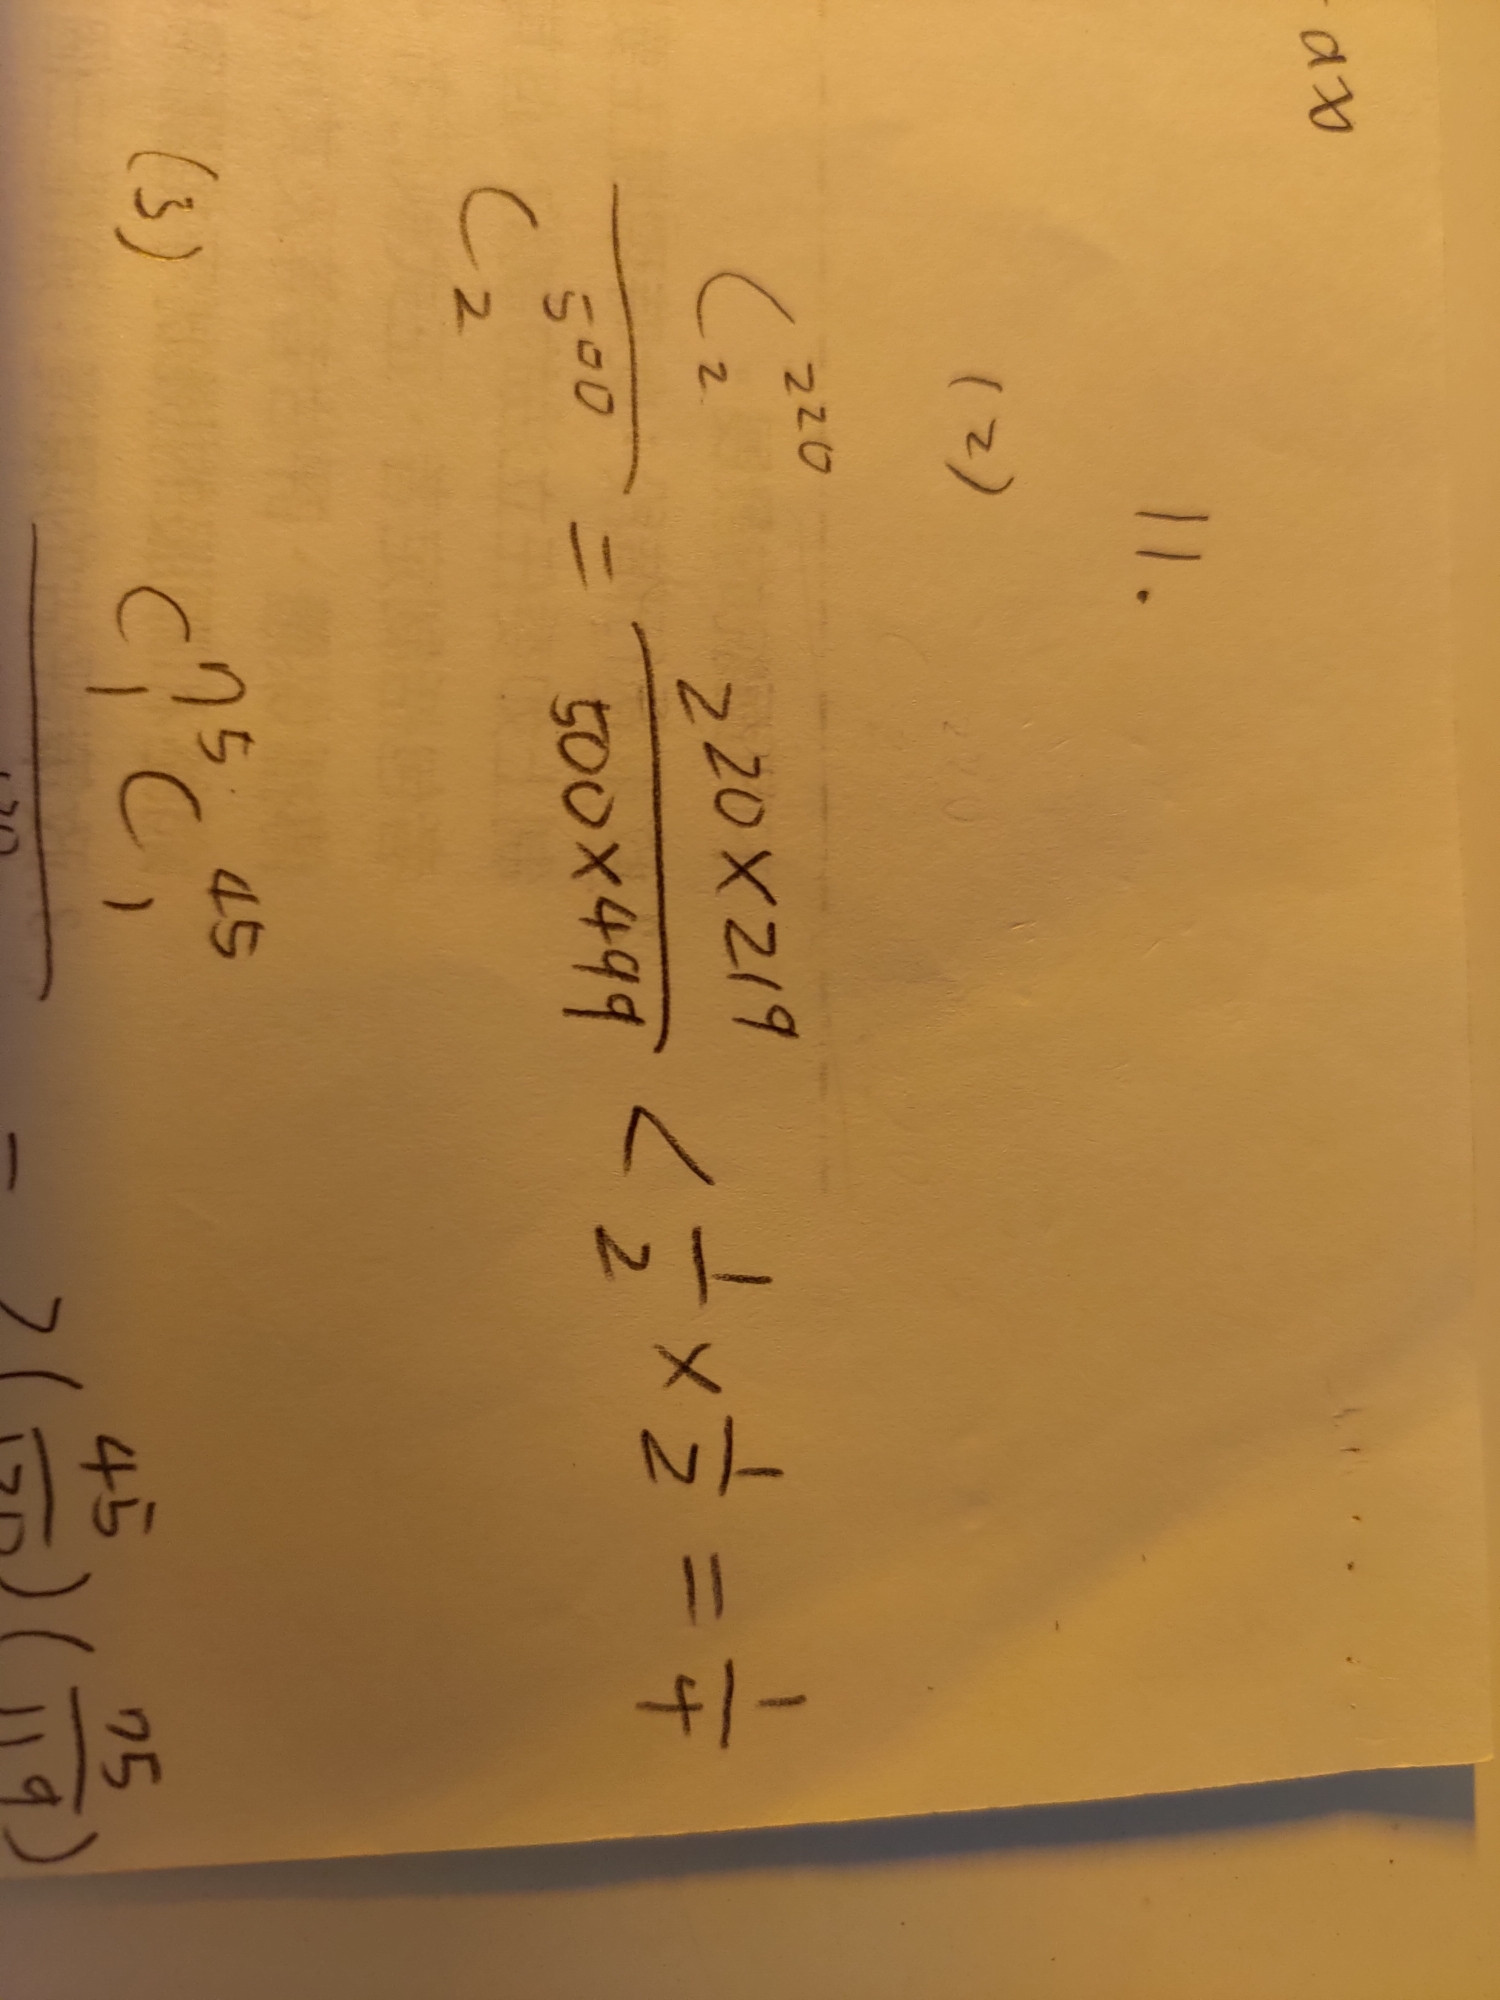 ax
11.
(2)
C₂²²⁰ / C₂⁵⁰⁰ = 220×219 / 500×499 < 1/2 × 1/2 = 1/4
(3)
C₁⁷⁵ C₁⁴⁵
= 2 (45/120) (75/119)